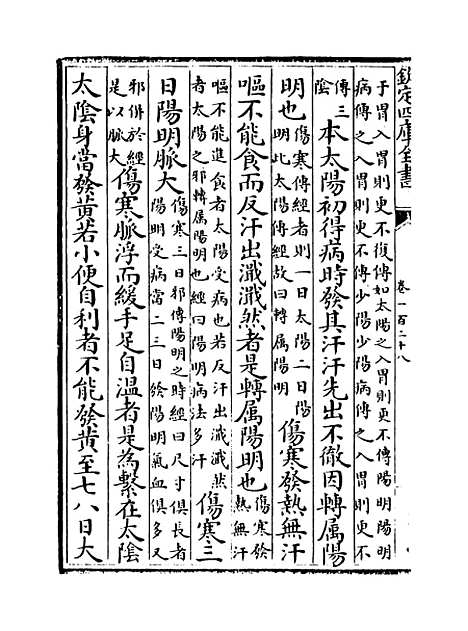 欽定四庫全書
卷一百二十八
于胃入胃則更不復傳如太陽之入胃則更不傳陽明陽明
病傳之入胃則更不傳少陽少陽病傳之入胃則更不
傳三
陰
本太陽初得病時發其汗汗先出不徹因轉属陽
明也
傷寒傳經者則一日太陽二日陽
明此太陽傳經故曰轉属陽明
傷寒發熱無汗
嘔不能食而反汗出濈濈然者是轉属陽明也
傷寒發
熱無汗
嘔不能進食者太陽受病也若反汗出濈濈然
者太陽之邪轉属陽明也經曰陽明病法多汗
傷寒三
日陽明脉大
傷寒三日邪傳陽明之時經曰尺寸俱長者
陽明受病當二三日發陽明氣血俱多又
邪併於經
是以脉大
傷寒脉浮而緩手足自温者是為繫在太陰
太陰身當發黄若小便自利者不能發黄至七八日大